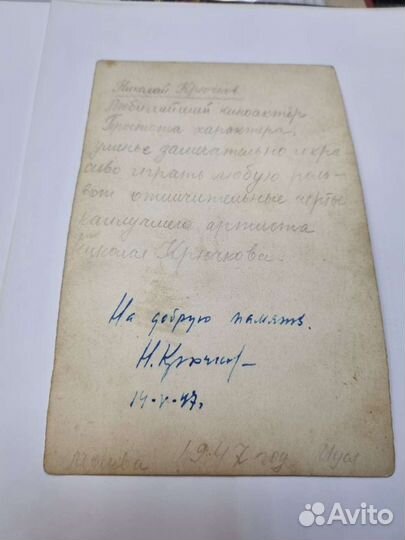 Николай Крючков
Любимейший киноактёр
Простота характера,
уменье замечательно и кра-
сиво играть любую роль-
вот отличительные черты
наилучшего артиста
Николая Крючкова.
На добрую память.
Н. Крючков
14-V-47г.
Москва 1947 год
Avito